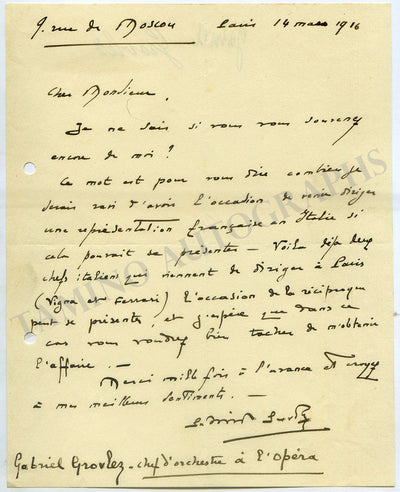 9. rue de Moscou Paris 14 mars 1916
Cher Monsieur,
Je ne sais si vous vous souvenez
encore de moi ?
Ce mot est pour vous dire combien je
serais ravi d'avoir l'occasion de venir diriger
une représentation française en Italie si
cela pouvait se présenter — Voilà déjà deux
chefs italiens qui viennent de diriger à Paris
(Vigna et Ferrari) l'occasion de la réciproque
peut se présenter, et j'espère que dans ce
cas vous voudrez bien tacher de m'obtenir
l'affaire. —
Merci mille fois à l'avance et croyez
à mes meilleurs sentiments. —
Gabriel Grovlez - chef d'orchestre à l'opéra
TAMINO AUTOGRAPHS